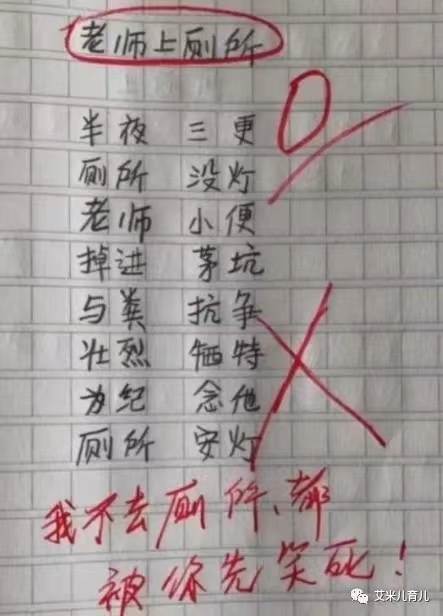 老师上厕所
0
半夜 三更
厕所 没灯
老师 小便
掉进 茅坑
与粪 抗争
壮烈 牺特
为纪 念他
厕所 安灯
我不去厕所、都
被你先笑死！
艾米儿育儿